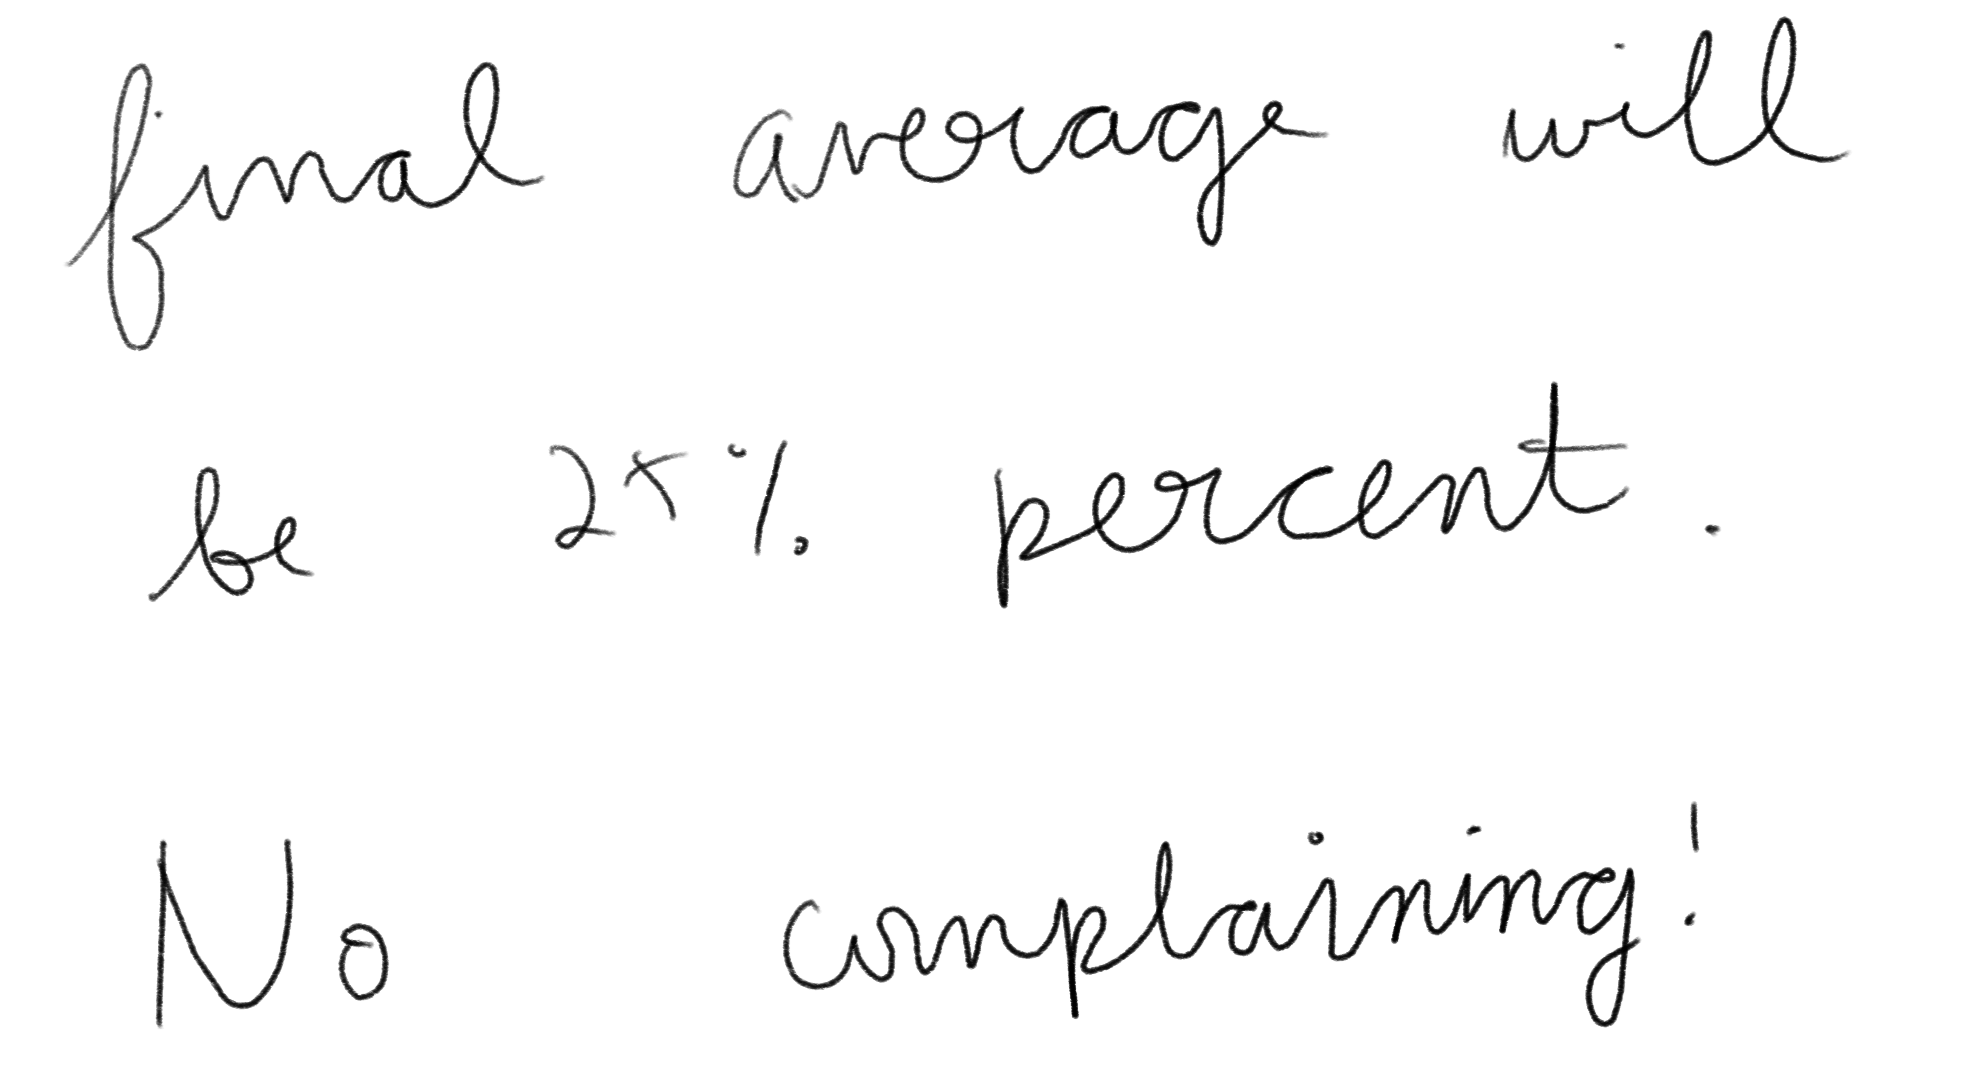 final average will
be 25% percent.
No complaining!